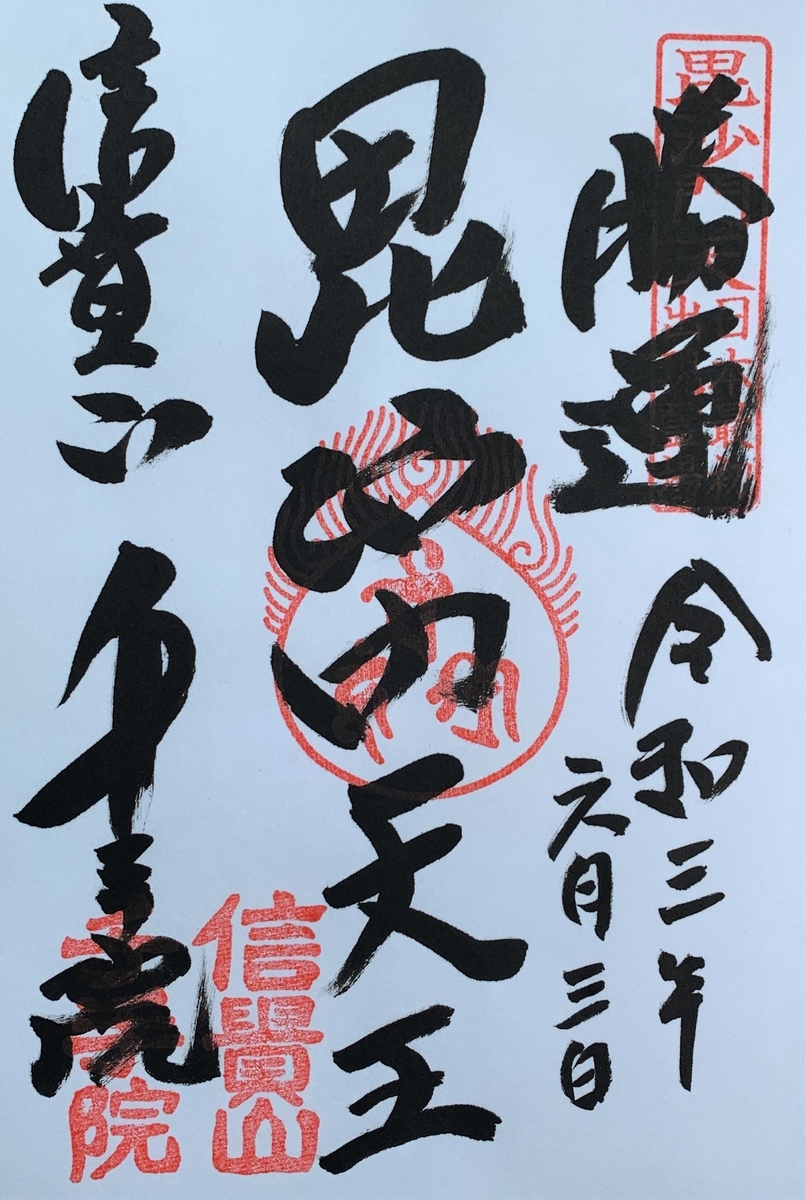 毘沙門天
日本最初
勝運
令和三年
六月三日
毘沙門天王
信貴山
千手院
信貴山
千手院